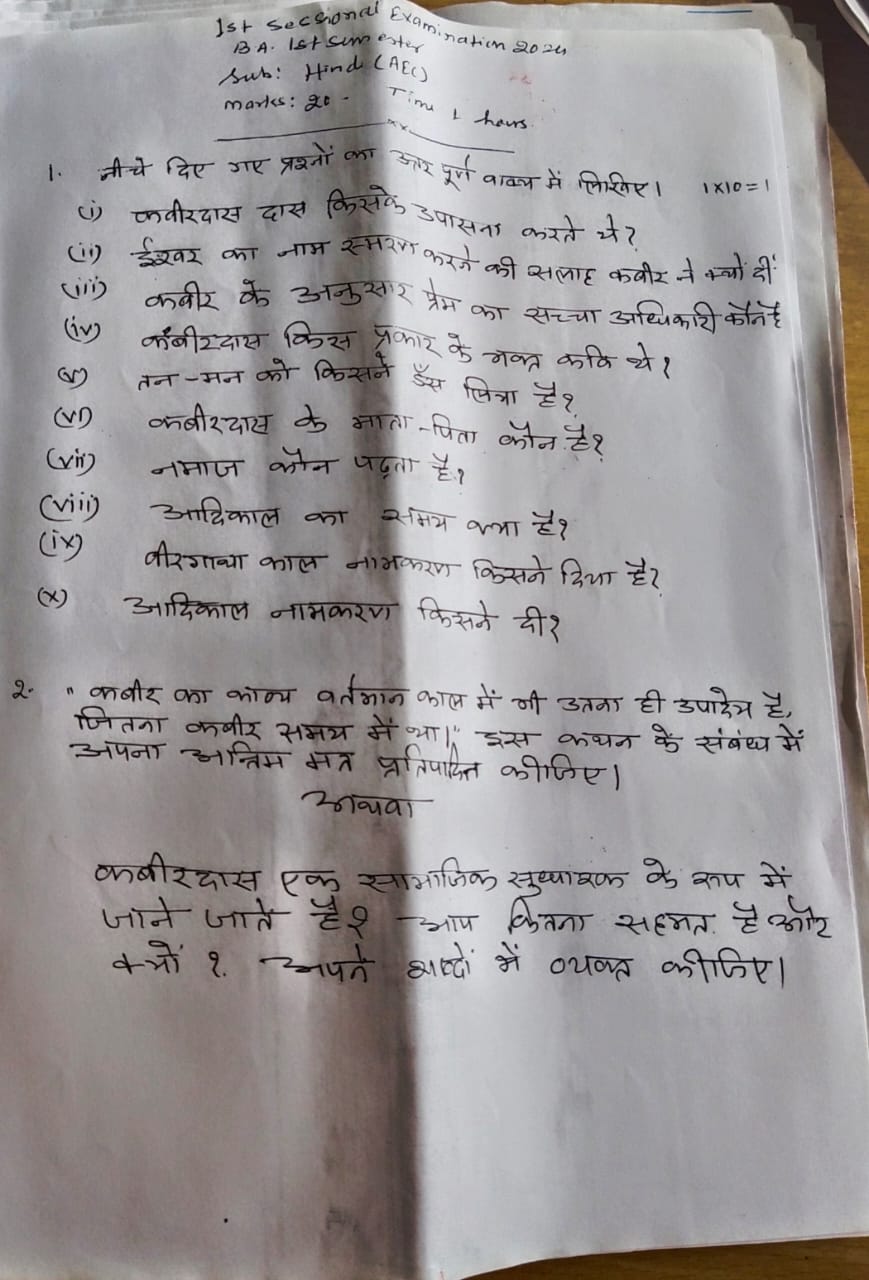 1st Secsional Examination 2024
BA. 1st Sem ester
Sub: Hindi (AEC)
Marks: 20 - Time 1 hours.
××
1. नीचे दिए गए प्रश्नों का उत्तर पूर्ण वाक्य में लिखिए। 1×10=1
(i) कबीरदास दास किसके उपासना करते थे?
(ii) ईश्वर का नाम स्मरण करने की सलाह कबीर ने क्यों दीं
(iii) कबीर के अनुसार प्रेम का सच्चा अधिकारी कौन है
(iv) कबीरदास किस प्रकार के भक्त कवि थे?
(v) तन-मन को किसने डँस लिया है?
(vi) कबीरदास के माता-पिता कौन है?
(vii) नमाज कौन पढ़ता है?
(viii) आदिकाल का समय क्या है?
(ix) वीरगाथा काल नामकरण किसने दिया है?
(x) आदिकाल नामकरण किसने दी?
2. "कबीर का काव्य वर्तमान काल में भी उतना ही उपादेय है,
जितना कबीर समय में था।" इस कथन के संबंध में
अपना अन्तिम मत प्रतिपादित कीजिए।
अथवा
कबीरदास एक सामाजिक सुधारक के रूप में
जाने जाते है? आप कितना सहमत है और
क्यों ?. अपने शब्दों में व्यक्त कीजिए।